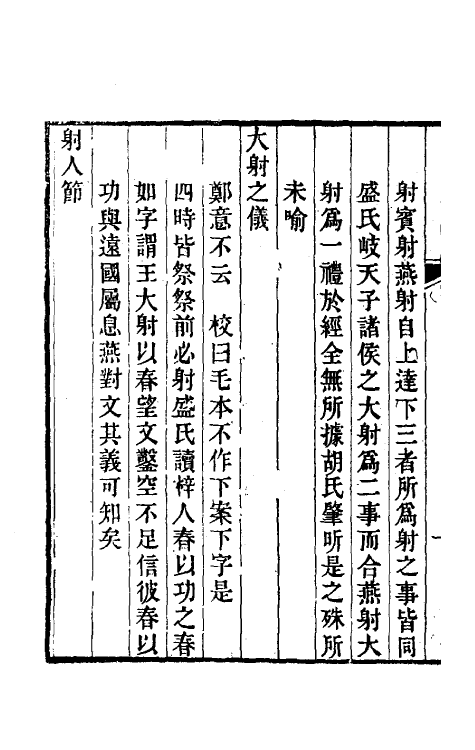 射賓射燕射自上達下三者所爲射之事皆同
盛氏岐天子諸侯之大射爲二事而合燕射大
射爲一禮於經全無所據胡氏肇昕是之殊所
未喻
大射之儀
鄭意不云　校曰毛本不作下案下字是
四時皆祭祭前必射盛氏讀梓人春以功之春
如字謂王大射以春望文鑿空不足信彼春以
功與遠國屬息燕對文其義可知矣
射人節